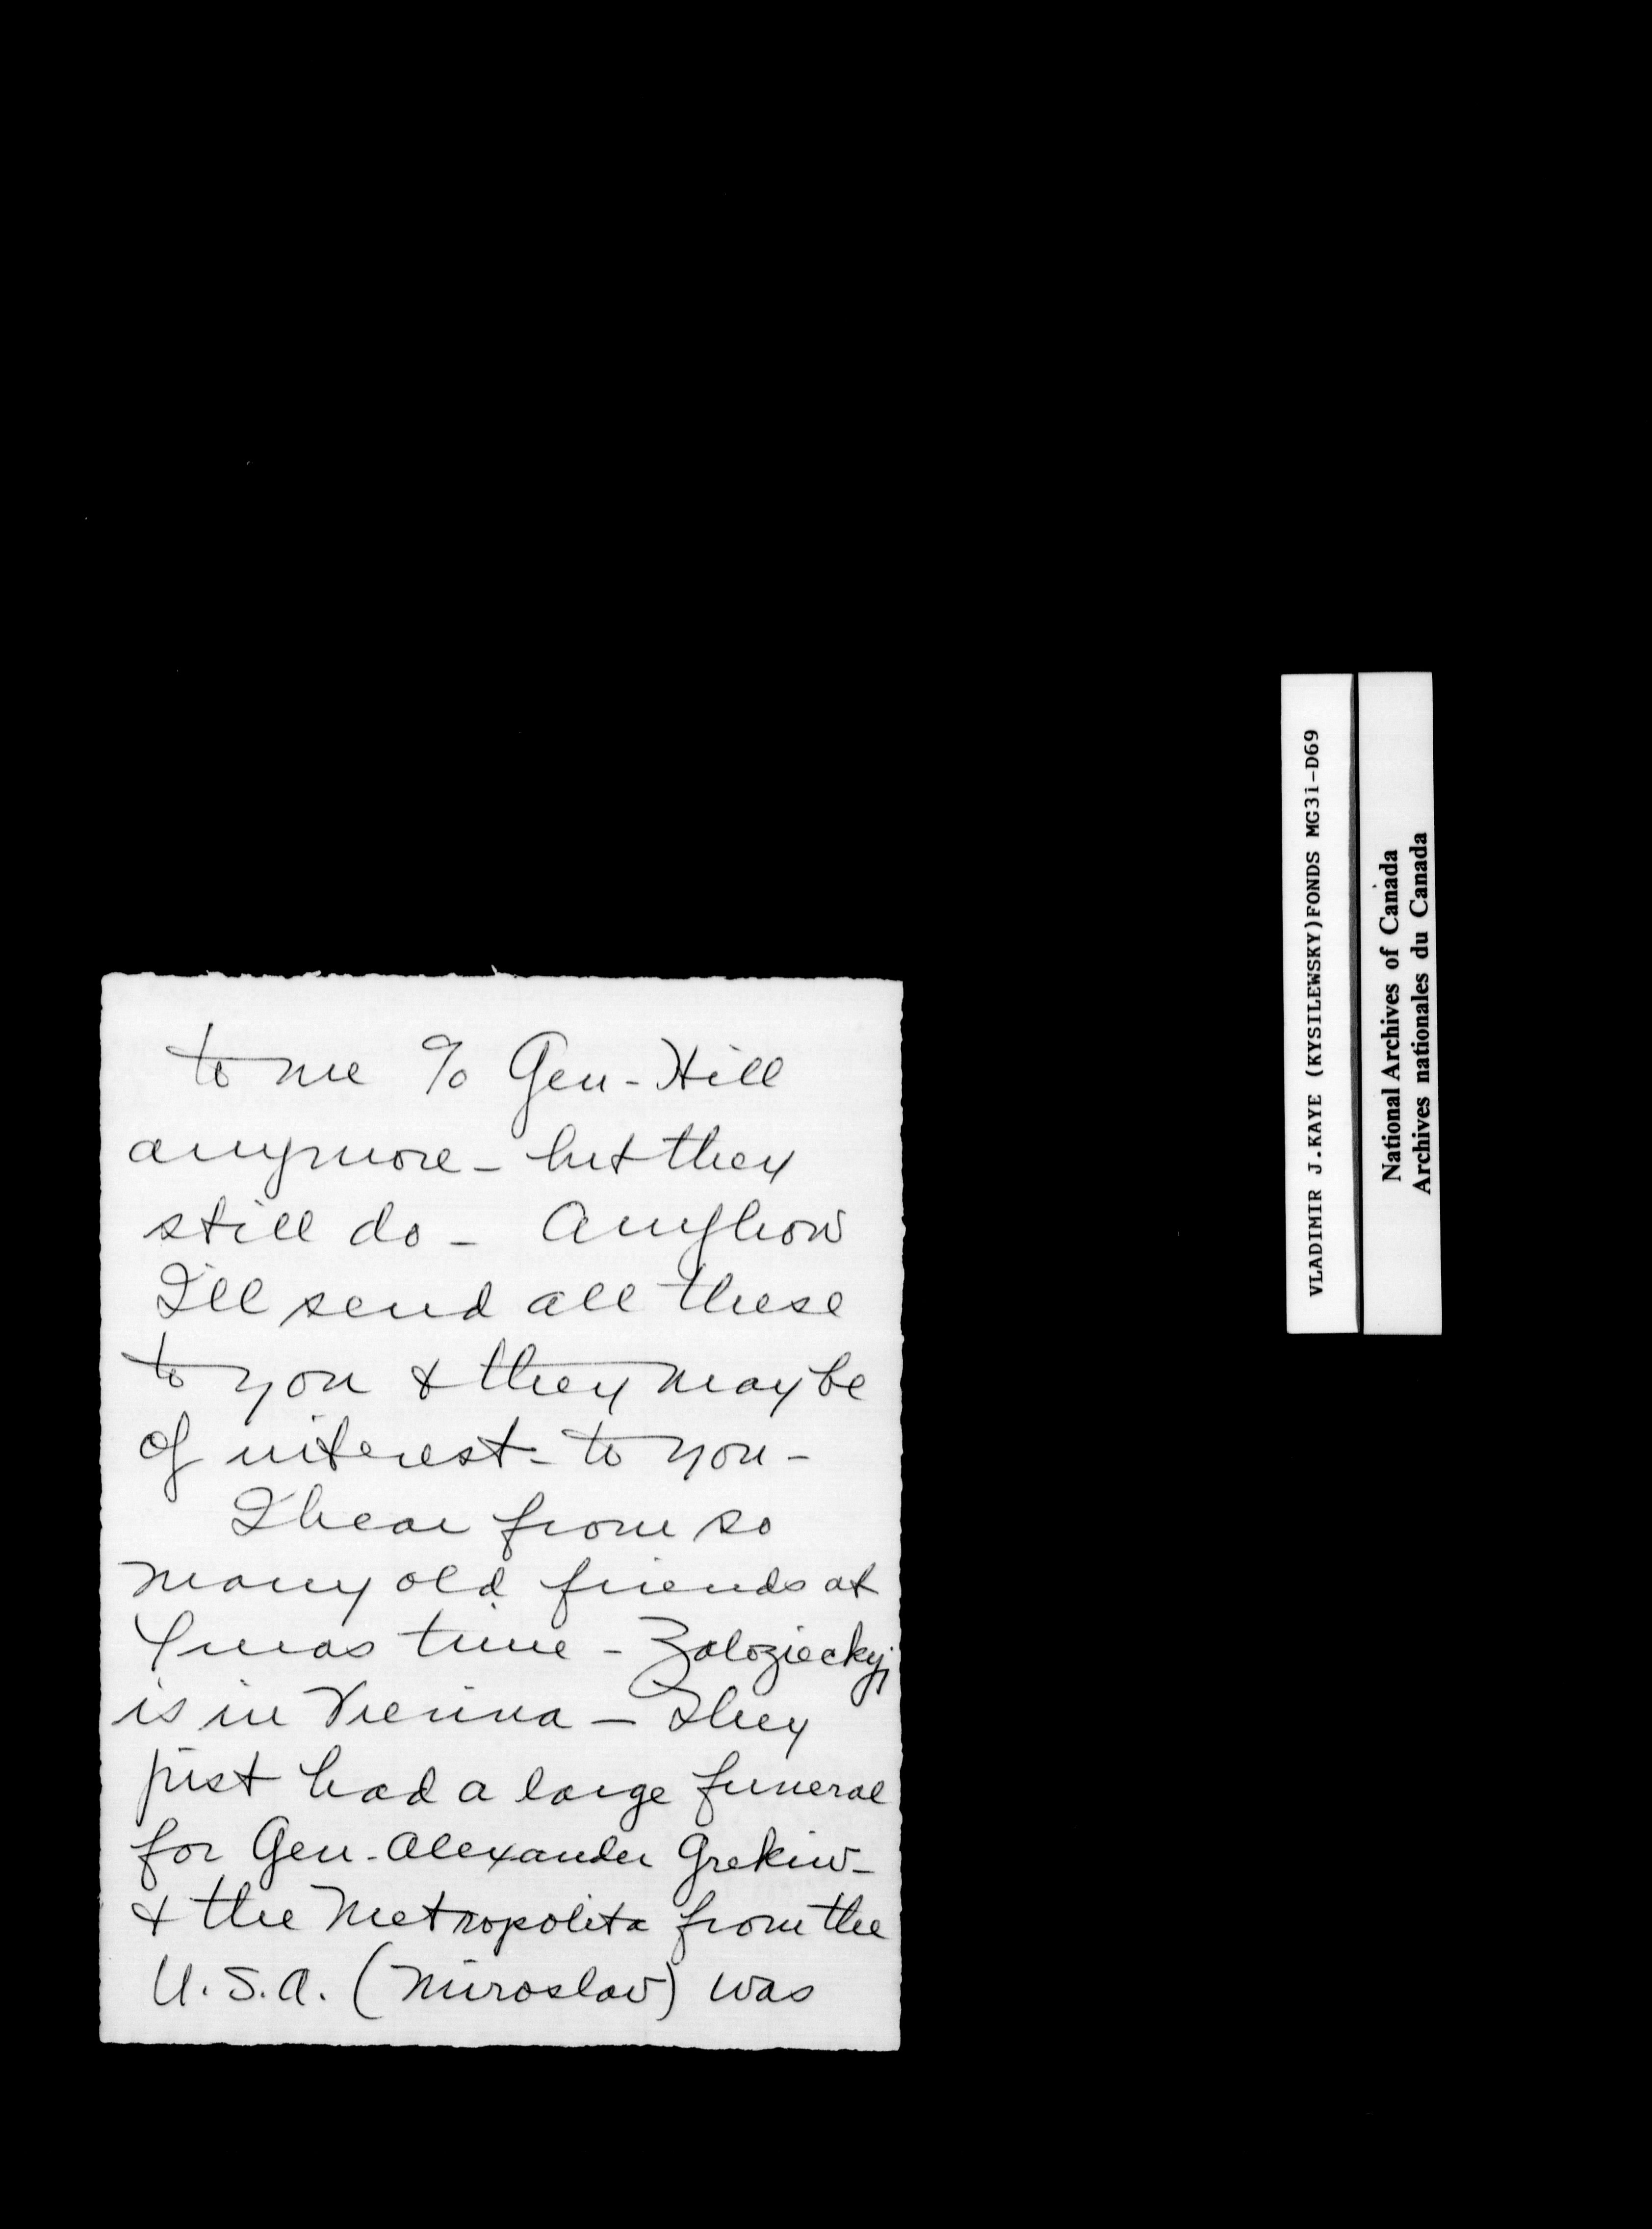 to me % Gen-Hill
anymore - but they
still do - Anyhow
I'll send all these
to you & they may be
of interest - to you -
I hear from so
many old friends at
Xmas time - Zalozieckyj
is in Vienna - They
just had a large funeral
for Gen. Alexander Grekiw -
& the Metropolita from the
U.S.A. (Miroslav) was
VLADIMIR J.KAYE (KYSILEWSKY)FONDS MG31-D69
National Archives of Canada
Archives nationales du Canada